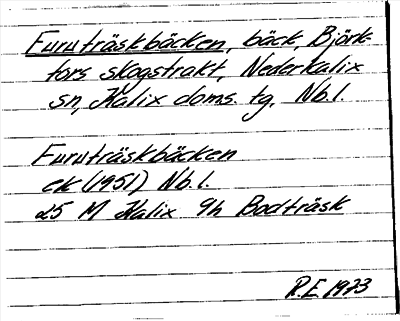 Furuträskbäcken, bäck, Björk-
fors skogstrakt, Nederkalix
sn, Kalix doms. tg. Nb. l.
Furuträskbäcken
ek (1951) Nb. l.
25 M Kalix 9h Bodträsk
R.E 1973